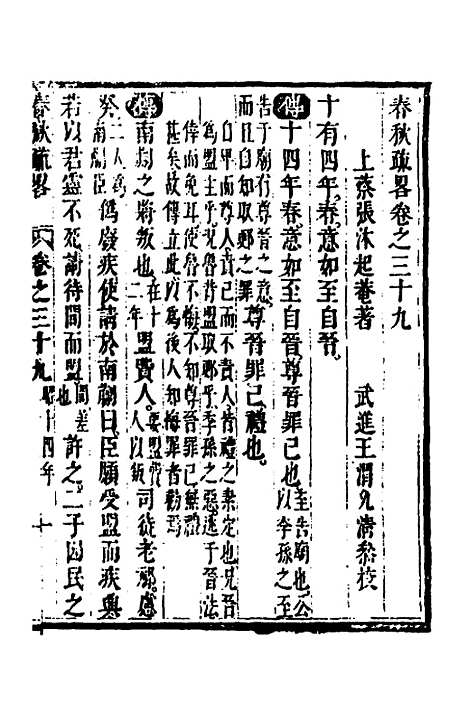 春秋疏畧卷之三十九
上蔡張沐起菴著　武進王渭允清叅校
十有四年春意如至自晉
傳十四年春意如至自晉尊晉罪己也至告廟也公以季孫之至
告于廟有尊晉之意而且自知取郠之罪尊晉罪己禮也
自卑而尊人責己而不責人皆禮之素定也況晉
為盟主乎況魯取郠乎季孫之惡逃于晉法
倖而免耳使皆不悔不知尊晉罪己無禮
甚矣故傳立此以為後人知悔罪者勸焉
傳南蒯之將叛也在十二年盟費人要盟費人以叛司徒老祁慮
癸二人為南蒯臣偽廢疾使請於南蒯曰臣願受盟而疾興
若以君靈不死請待間而盟間差也許之二子因民之
春秋疏畧　卷之三十九　昭十四年　一